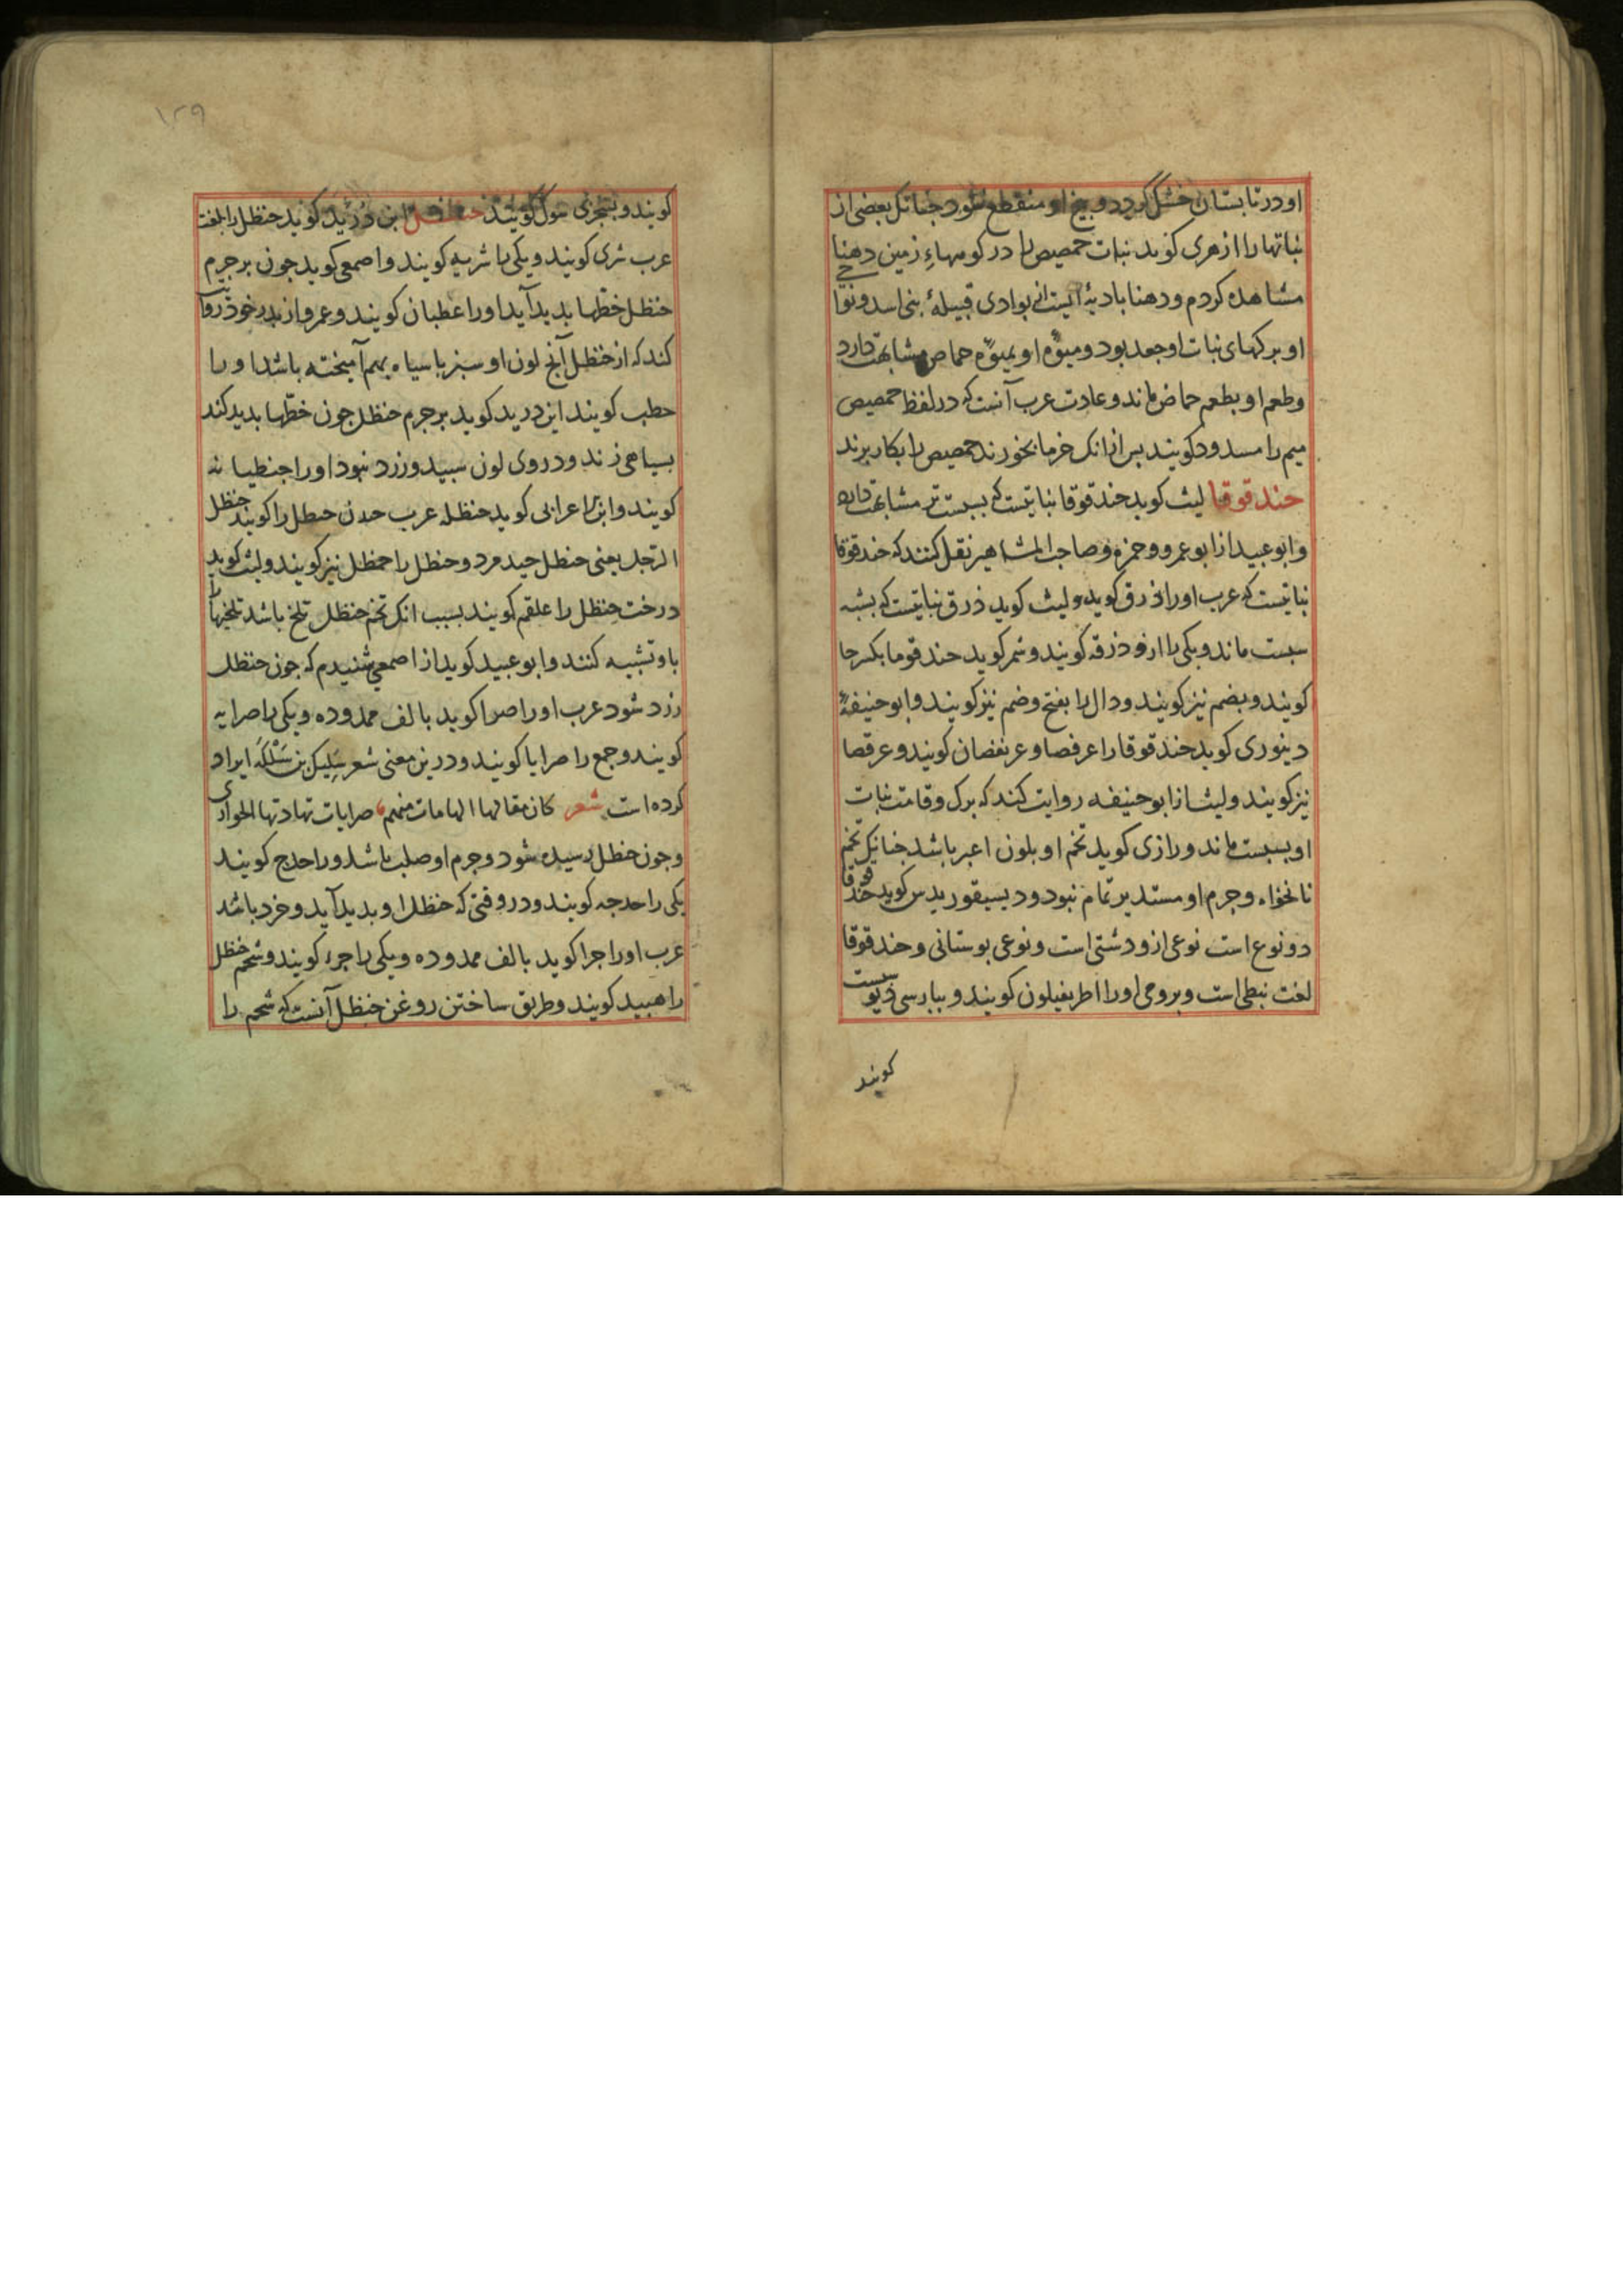 او در تابستان خشک کردد و بیخ او منقطع شود جنانک بعضی از
نباتها را ازهری کوید نبات حمصیص را در کوههاءِ زمین دهنا
مشاهده کردم و دهنا بادیهٔ ایست بوادی قبیلهٔ بنی اسد و نواحی
او برکهای نبات او جعد بود و میوهٔ او بمیوهٔ حماض مشابهت دارد
وطعم او بطعم حماض ماند و عادت عرب آنست که در لفظ حمصیص
میم را مسدود کویند بس از انک خرما بخورند حمصیص را بکار برند
حندقوقا لیث کوید حندقوقا نباتیست که بسبست تر مشابهت دارد
وابو عبید از ابو عمرو و حمزه و صاحب المشاهیر نقل کنند که حندقوقا
نباتیست که عرب او را ذرق کوید و لیث کوید ذرق نباتیست که بشبه
سبست ماند و یکی را ازو ذرقه کویند و شمر کوید حندقوقا بکسر حا
کویند و بضم نیز کویند و دال را بفتح و ضم نیز کویند و ابو حنیفهٔ
دینوری کوید حندقوقا را عرفصا و عرنفصان کویند و عرقصا
نیز کویند و لیث از ابو حنیفه روایت کند که برک و قامت نبات
او بسبست ماند و رازی کوید تخم او بلون اغبر باشد جنانک تخم
نانخواه و جرم او مستدیر تمام نبود و دیسیقوریدس کوید حندقوقا
دو نوع است نوعی ازو دشتی است و نوعی بوستانی و حندقوقا
لغت نبطی است و برومی او را اطریفیلون کویند و ببارسی دیو سبست
کویند
۱۲۹
کویند و بسجزی کویند حنظل ابن دُرَید کوید حنظل را بلغت
عرب شری کویند و یکی را شریه کویند و اصمعی کوید جون بر جرم
حنظل خطها بدید آید او را خطبان کویند و عمرو از بدر خود روایت
کند که از حنظل آنج لون او سبز با سیاه بهم آمیخته باشد او را
خطب کویند ابن درید کوید بر جرم حنظل جون خطها بدید کند
بسیاهی زند و در وی لون سبید و زرد نبود او را
کویند و ابن اعرابی کوید حنظله عرب را کویند حنظل
الرجل یعنی حنظل حید مرد و حنظل را حمظل نیز کویند و لیث کوید
درخت حنظل را علقم کویند بسبب انک تخم حنظل تلخ باشد تلخیها را
باو تشبیه کنند و ابو عبید کوید از اصمعی شنیدم که جون حنظل
زرد شود عرب او را صرا کوید بالف ممدوده و یکی را صرایه
کویند و جمع را صرایا کویند و درین معنی شعر سُلَیک بن سُلَکَه ایراد
کرده است شعر کان مقالها الهامات منهم صرایات تهادتها الجواری
وجون حنظل رسیده شود و جرم او صلب باشد ورا حدج کویند
یکی را حدجه کویند و در وقتی که حنظل او بدید آید و خرد باشد
عرب او را جرا کوید بالف ممدوده و یکی را جرء کویند و شحم حنظل
را هبید کویند و طریق ساختن روغن حنظل آنست که شحم را